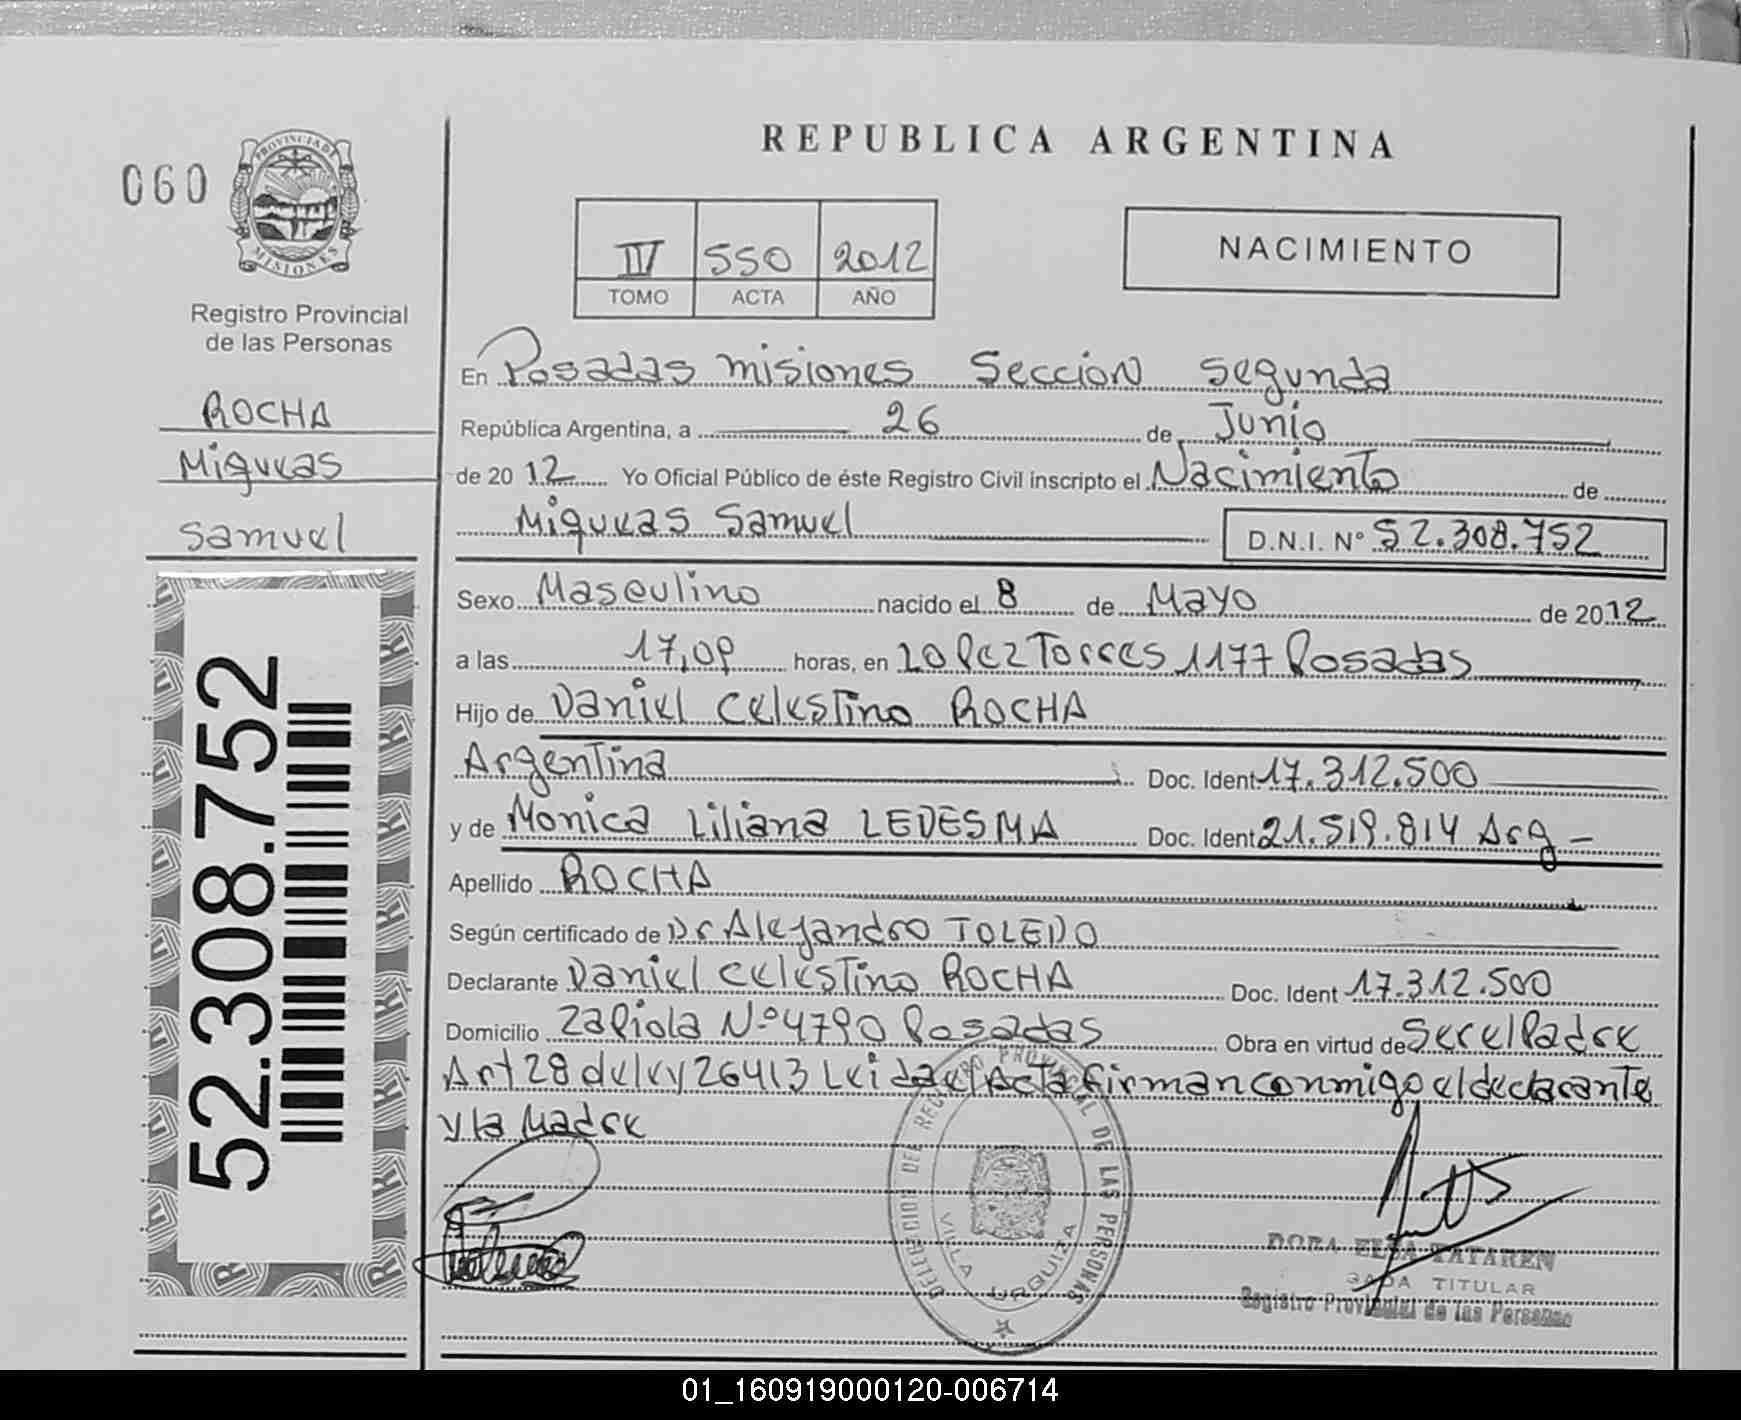 REPUBLICA ARGENTINA
060
PROVINCIA DE
MISIONES
Registro Provincial
de las Personas
ROCHA
Miqueas
Samuel
52.308.752
IV 550 2012
TOMO ACTA AÑO
NACIMIENTO
En Posadas misiones Seccion Segunda
República Argentina, a 26 de Junio
de 2012 Yo Oficial Público de éste Registro Civil inscripto el Nacimiento de
Miqueas Samuel D.N.I. N° 52.308.752
Sexo Masculino nacido el 8 de Mayo de 2012
a las 17,09 horas, en Lopez Torres 1177 Posadas
Hijo de Daniel Celestino ROCHA
Argentina Doc. Ident. 17.312.500
y de Monica Liliana LEDESMA Doc. Ident 21.519.814 Arg -
Apellido ROCHA
Según certificado de Dr Alejandro TOLEDO
Declarante Daniel Celestino ROCHA Doc. Ident 17.312.500
Domicilio Zapiola N.º 4790 Posadas Obra en virtud de Ser el Padre
Art 28 de ley 26413 Leida el Acta firman conmigo el declarante
y la Madre
DELEGACION DEL REGISTRO PROVINCIAL DE LAS PERSONAS
VILLA URQUIZA
DORA ELSA TATAREN
TITULAR
Registro Provincial de las Personas
01_160919000120-006714